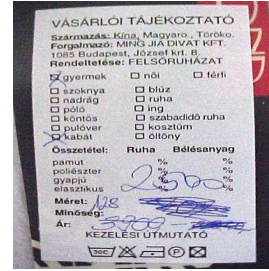 VÁSÁRLÓI TÁJÉKOZTATÓ
Származás: Kína, Magyaro., Töröko.
Forgalmazó: MING JIA DIVAT KFT.
1085 Budapest, József krt. 8.
Rendeltetése: FELSŐRUHÁZAT
gyermek női férfi
szoknya blúz
nadrág ruha
póló ing
köntös szabadidő ruha
pulóver kosztüm
kabát öltöny
Összetétel: Ruha Bélésanyag
pamut % %
poliészter % %
gyapjú % %
elasztikus % %
Méret: 128
Minőség:
Ár:
KEZELÉSI ÚTMUTATÓ